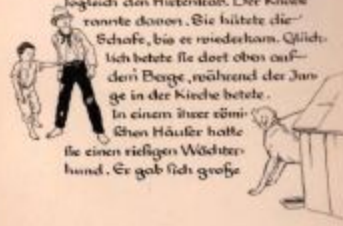 sogleich den Hirtenstab. Der Knabe
rannte davon. Sie hütete die
Schafe, bis er wiederkam. Glück-
lich betete sie dort oben auf
dem Berge, während der Jun-
ge in der Kirche betete.
In einem ihrer römi-
schen Häuser hatte
sie einen riesigen Wächter-
hund. Er gab sich große